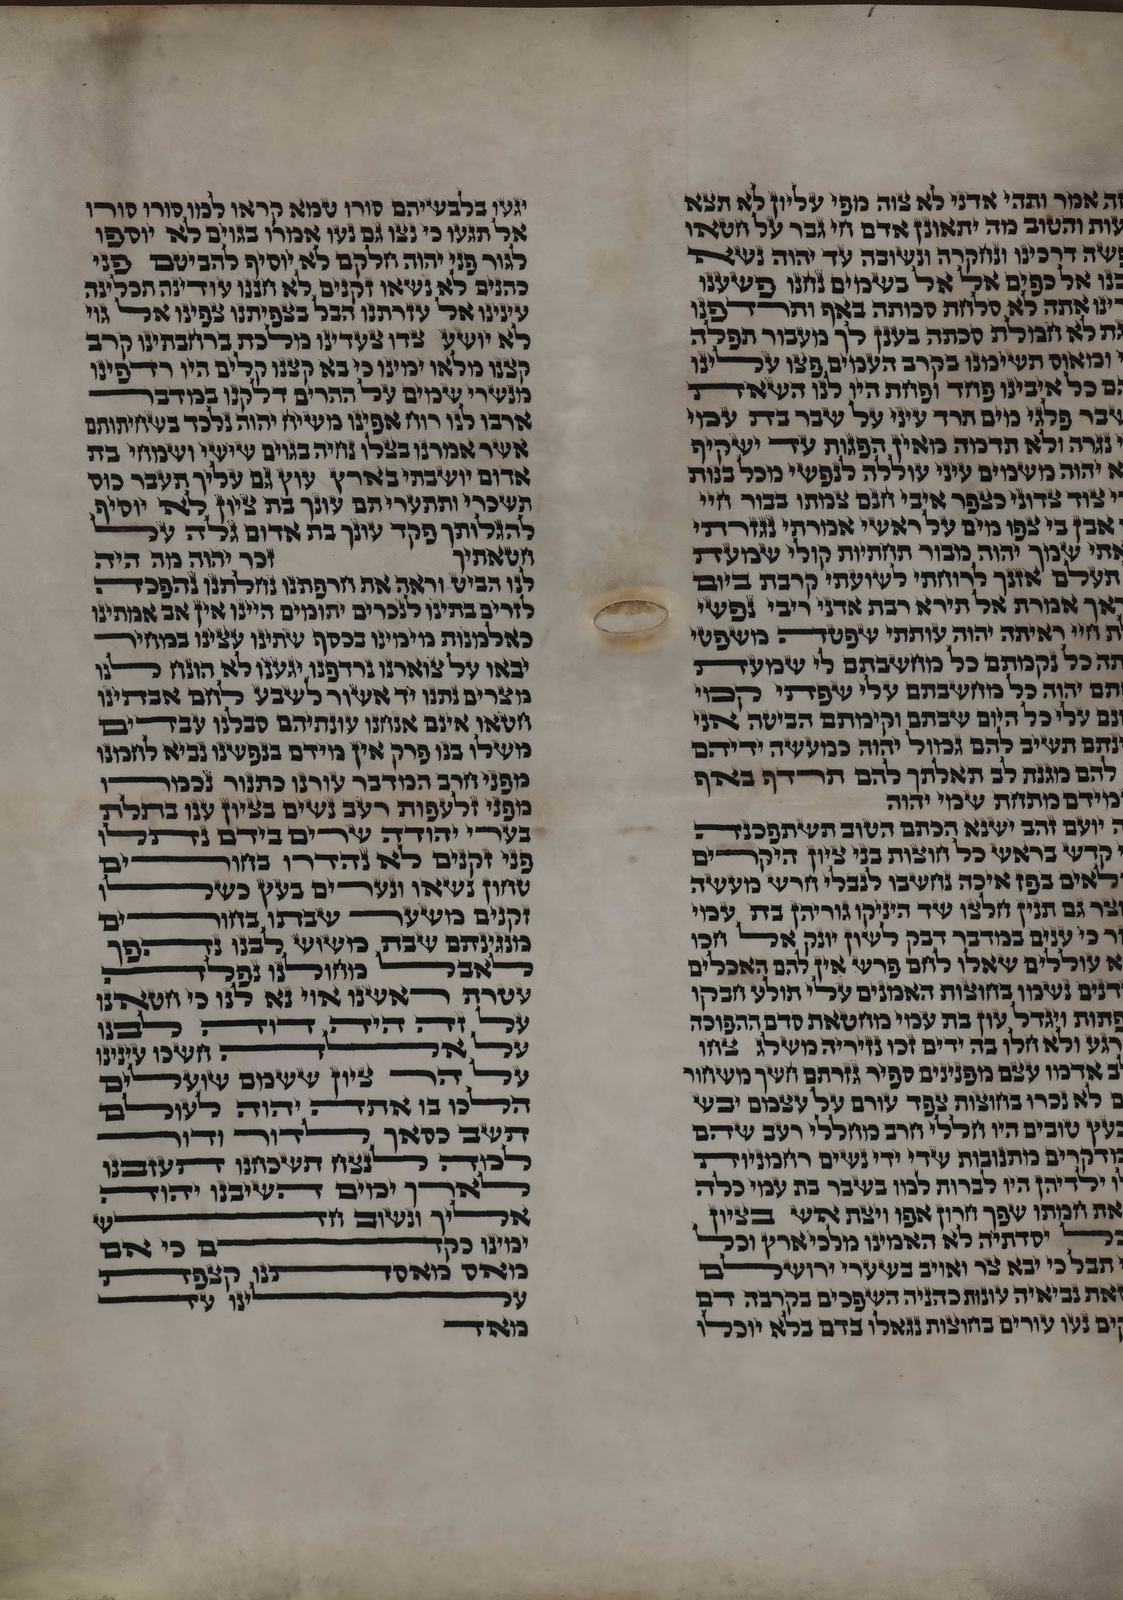 זה אמר ותהי אדני לא צוה מפי עליון לא תצא
עות והטוב מה יתאונן אדם חי גבר על חטאו
פשה דרכינו ונחקרה ונשובה עד יהוה נשא
בנו אל כפים אל אל בשמים נחנו פשענו
רינו אתה לא סלחת סכותה באף ותרדפנו
גת לא חמלת סכתה בענן לך מעבור תפלה
י ומאוס תשימנו בקרב העמים פצו עלינו
הם כל איבינו פחד ופחת היו לנו השאת
שבר פלגי מים תרד עיני על שבר בת עמי
י נגרה ולא תדמה מאין הפגות עד ישקיף
א יהוה משמים עיני עוללה לנפשי מכל בנות
רי צוד צדוני כצפר איבי חנם צמתו בבור חיי
אבן בי צפו מים על ראשי אמרתי נגזרתי
אתי שמך יהוה מבור תחתיות קולי שמעת
תעלם אזנך לרוחתי לשועתי קרבת ביום
ראך אמרת אל תירא רבת אדני ריבי נפשי
ת חיי ראיתה יהוה עותתי שפטה משפטי
תה כל נקמתם כל מחשבתם לי שמעת
תם יהוה כל מחשבתם עלי שפתי קמי
ונם עלי כל היום שבתם וקימתם הביטה אני
ינתם תשיב להם גמול יהוה כמעשה ידיהם
להם מגנת לב תאלתך להם תרדף באף
מידם מתחת שמי יהוה
ה יועם זהב ישנא הכתם הטוב תשתפכנה
י קדש בראש כל חוצות בני ציון היקרים
לאים בפז איכה נחשבו לנבלי חרש מעשה
וצר גם תנין חלצו שד היניקו גוריהן בת עמי
זר כי ענים במדבר דבק לשון יונק אל חכו
א עוללים שאלו לחם פרש אין להם האכלים
דנים נשמו בחוצות האמנים עלי תולע חבקו
פתות ויגדל עון בת עמי מחטאת סדם ההפוכה
רגע ולא חלו בה ידים זכו נזיריה משלג צחו
ב אדמו עצם מפנינים ספיר גזרתם חשך משחור
ם לא נכרו בחוצות צפד עורם על עצמם יבש
כעץ טובים היו חללי חרב מחללי רעב שהם
מדקרים מתנובות שדי ידי נשים רחמניות
ו ילדיהן היו לברות למו בשבר בת עמי כלה
את חמתו שפך חרון אפו ויצת אש בציון
כל יסדתיה לא האמינו מלכי ארץ וכל
י תבל כי יבא צר ואויב בשערי ירושלם
זאת נביאיה עונות כהניה השפכים בקרבה דם
קים נעו עורים בחוצות נגאלו בדם בלא יוכלו
יגעו בלבשיהם סורו טמא קראו למו סורו סורו
אל תגעו כי נצו גם נעו אמרו בגוים לא יוספו
לגור פני יהוה חלקם לא יוסיף להביטם פני
כהנים לא נשאו זקנים לא חננו עודינה תכלינה
עינינו אל עזרתנו הבל בצפיתנו צפינו אל גוי
לא יושע צדו צעדינו מלכת ברחבתינו קרב
קצנו מלאו ימינו כי בא קצנו קלים היו רדפינו
מנשרי שמים על ההרים דלקנו במדבר
ארבו לנו רוח אפינו משיח יהוה נלכד בשחיתותם
אשר אמרנו בצלו נחיה בגוים שישי ושמחי בת
אדום יושבתי בארץ עוץ גם עליך תעבר כוס
תשכרי ותתערי תם עונך בת ציון לא יוסיף
להגלותך פקד עונך בת אדום גלה על
חטאתיך זכר יהוה מה היה
לנו הביט וראה את חרפתנו נחלתנו נהפכה
לזרים בתינו לנכרים יתומים היינו אין אב אמתינו
כאלמנות מימינו בכסף שתינו עצינו במחיר
יבאו על צוארנו נרדפנו יגענו לא הונח לנו
מצרים נתנו יד אשור לשבע לחם אבתינו
חטאו אינם אנחנו עונתיהם סבלנו עבדים
משלו בנו פרק אין מידם בנפשנו נביא לחמנו
מפני חרב המדבר עורנו כתנור נכמרו
מפני זלעפות רעב נשים בציון ענו בתלת
בערי יהודה שרים בידם נתלו
פני זקנים לא נהדרו בחורים
טחון נשאו ונערים בעץ כשלו
זקנים משער שבתו בחורים
מנגינתם שבת משוש לבנו נהפך
לאבל מחולנו נפלה
עטרת ראשנו אוי נא לנו כי חטאנו
על זה היה דוה לבנו
על אלה חשכו עינינו
על הר ציון ששמם שועלים
הלכו בו אתה יהוה לעולם
תשב כסאך לדור ודור
למה לנצח תשכחנו תעזבנו
לארך ימים השיבנו יהוה
אליך ונשוב חדש
ימינו כקדם כי אם
מאס מאסתנו קצפת
עלינו עד
מאד